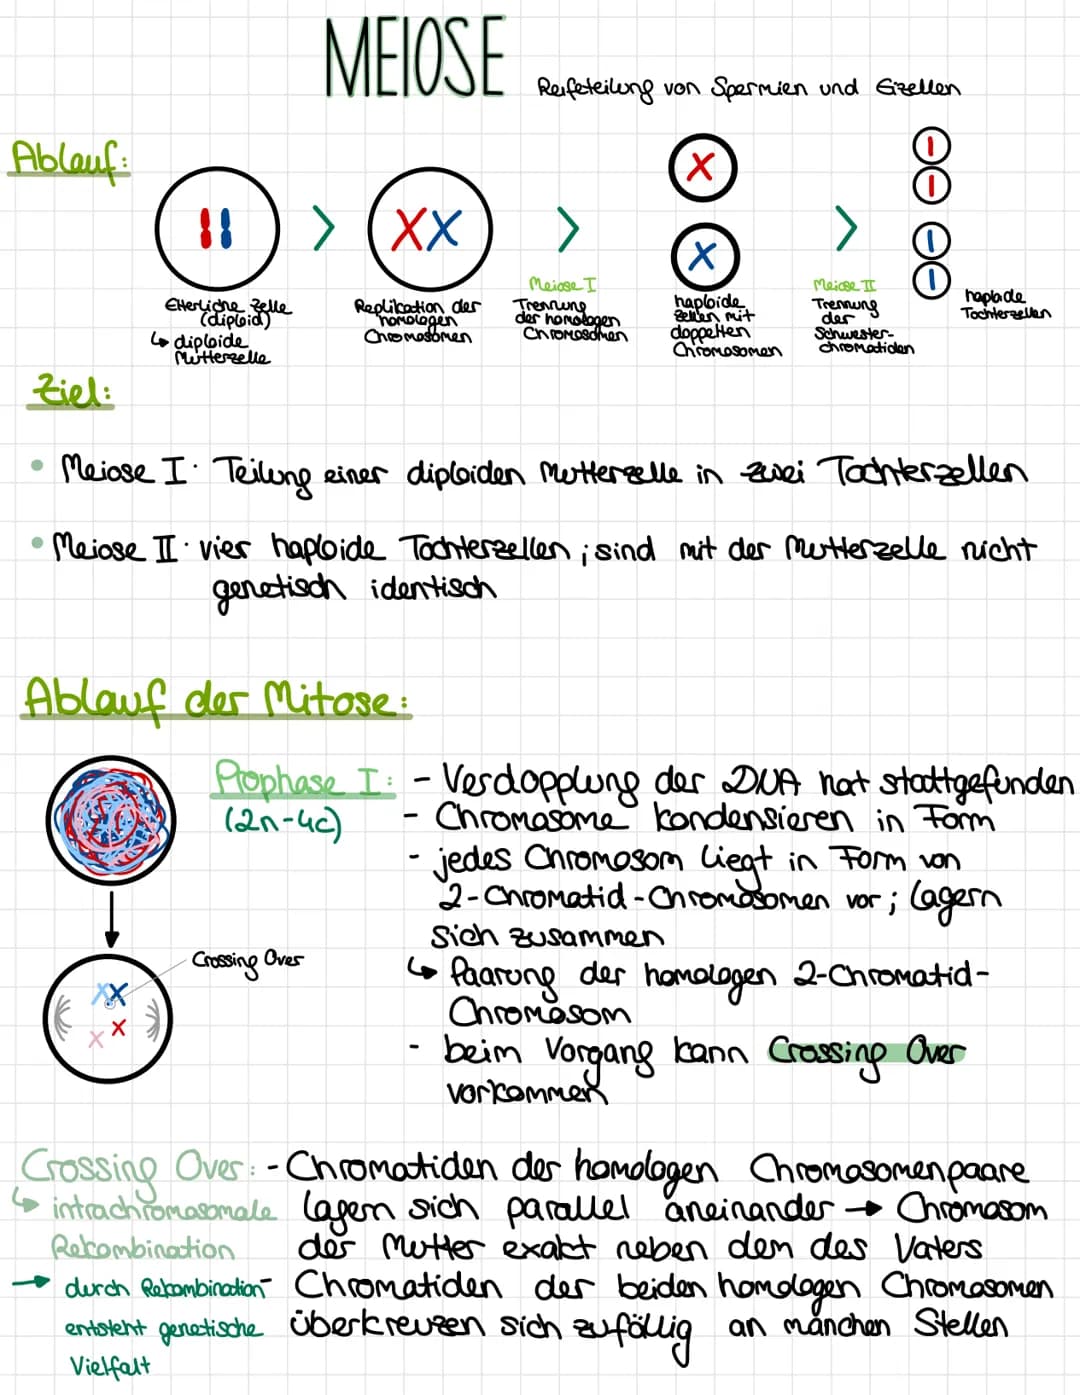 MEIOSE
Reifeteilung von Spermien und Eizellen
Ablauf:
Elterliche Zelle
(diploid)
↳ diploide
Mutterzelle
Replikation der
homologen
Chromosomen
Meiose I
Trennung
der homologen
Chromosomen
haploide
Zellen mit
doppelten
Chromosomen
Meiose II
Trennung
der
Schwester-
chromatiden
haploide
Tochterzellen
Ziel:
• Meiose I: Teilung einer diploiden Mutterzelle in zwei Tochterzellen
• Meiose II: vier haploide Tochterzellen; sind mit der Mutterzelle nicht
genetisch identisch
Ablauf der Mitose:
Prophase I:
(2n-4c)
- Verdopplung der DNA hat stattgefunden
- Chromosome kondensieren in Form
- jedes Chromosom liegt in Form von
2-Chromatid-Chromosomen vor; lagern
sich zusammen
↳ Paarung der homologen 2-Chromatid-
Chromosom
- beim Vorgang kann Crossing Over
vorkommen
Crossing Over
Crossing Over:
↳ intrachromosomale
Rekombination
→ durch Rekombination
entsteht genetische
Vielfalt
- Chromatiden der homologen Chromosomenpaare
lagern sich parallel aneinander → Chromosom
der Mutter exakt neben dem des Vaters
- Chromatiden der beiden homologen Chromosomen
überkreuzen sich zufällig an manchen Stellen